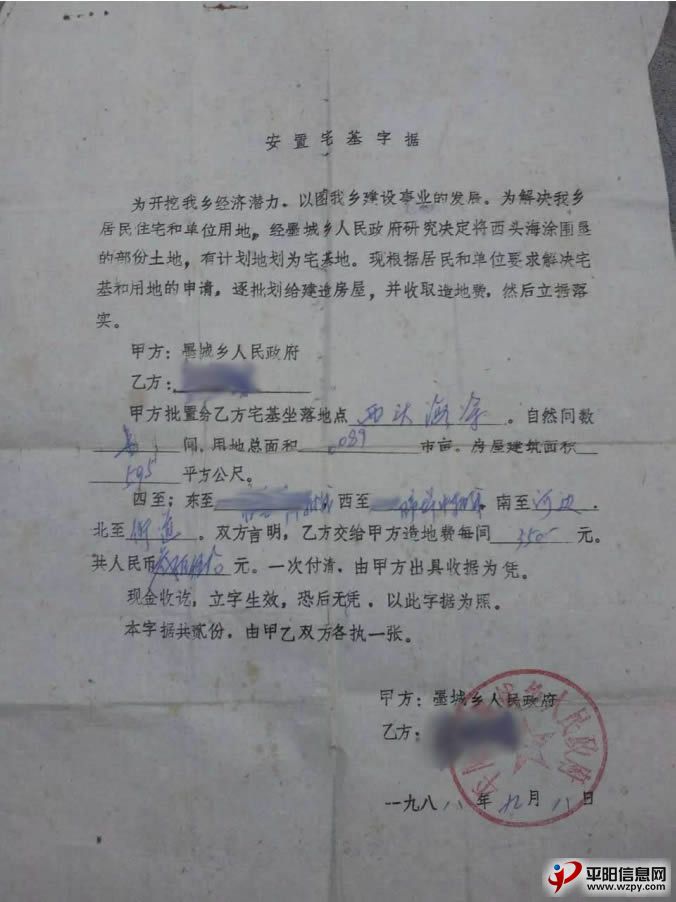 安置宅基字据
为开挖我乡经济潜力．以图我乡建设事业的发展。为解决我乡
居民住宅和单位用地，经墨城乡人民政府研究决定将西头海涂围垦
的部份土地，有计划地划为宅基地。现根据居民和单位要求解决宅
基和用地的申请，逐批划给建造房屋，并收取造地费，然后立据落
实。
甲方：墨城乡人民政府
乙方：
甲方批置给乙方宅基坐落地点 西头海涂 。自然间数
间，用地总面和 .089 市亩。房屋建筑面积
595 平方公尺。
四至；东至 ，西至 ，南至 河边 ．
北至 街道 。双方言明，乙方交给甲方造地费每间 350 元。
共人民币 元。一次付清，由甲方出具收据为凭。
现金收讫，立字生效，恐后无凭．以此字据为照。
本字据共贰份，由甲乙双方各执一张。
甲方：墨城乡人民政府
乙方：
一九八八年九月八日
乡人民政府
平阳信息网
www.wzpy.com